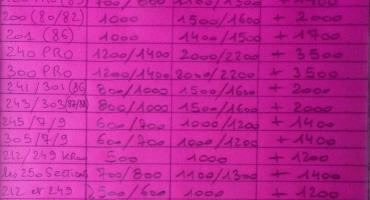 700/800 1100/1300 +1400
200 (80/82) 1000 1500/1600 + 2000
201 (86) 1000 1400/1500 + 1700
240 PRO 1200/1400 2000/2200 + 3500
300 PRO 1200/1400 2000/2200 + 3500
241/301 (86 800/1000 1500/1600 + 2000
243/303 (87/88) 800/1000 1500/1600 + 2000
245/7/9 600/700 1000/1200 + 1400
305/7/9 600/700 1000/1200 + 1400
212/249 500 1000 + 1200
les 250 Section 700/800 1100/1300 + 1400
212 et 249 500/600 1000 + 1200